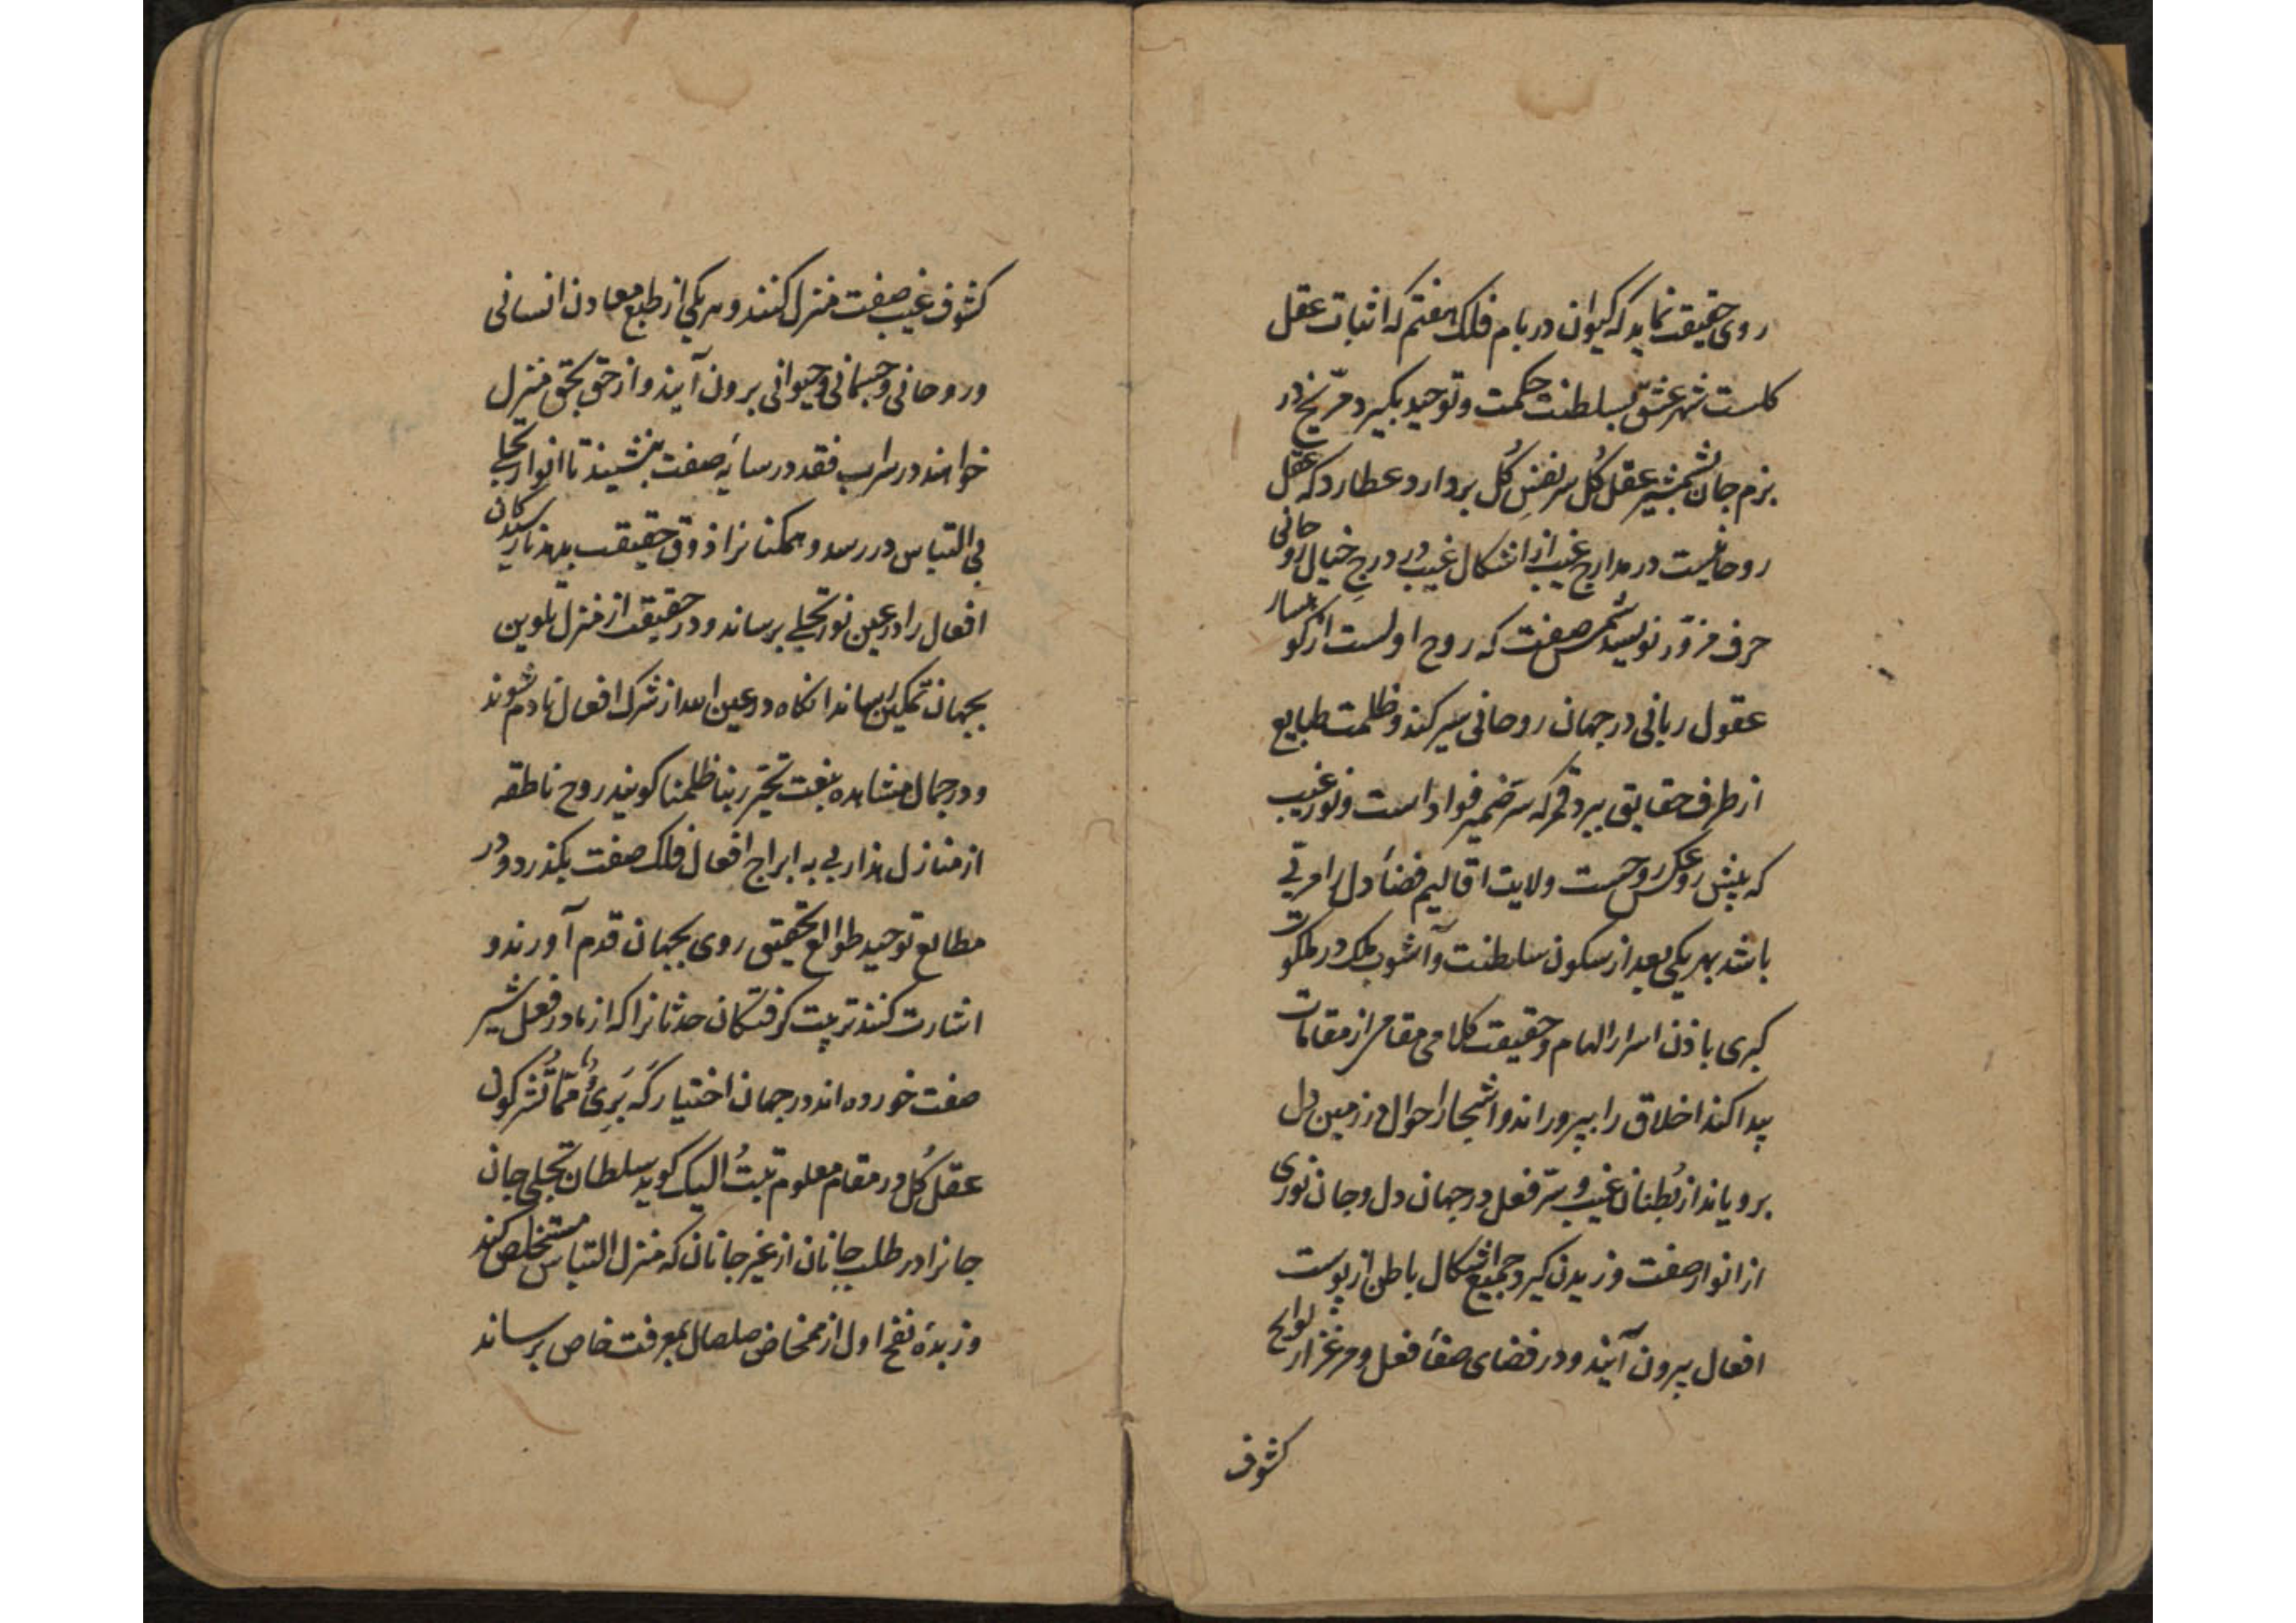 روی حقیقت نماید که کیوان در بام فلک هفتم که اثبات عقل
کلست شهر عشق بسلطنت حکمت و توحید بگیرد مرّیخ در
بزم جان بشمشیر عقل کُل سر نفسِ کُل بردارد عطارد که عقل
روحانیست در مدارج غیب از اشکال غیب در درج خیال روحانی
حرف مزوّر نویسد شمس صفت که روح اولست از کوهسار
عقول ربانی در جهان روحانی سیر کند و ظلمت طبایع
از طرف حقایق ببرد قمر که سرّ ضمیر فواد است و نور غیب
که پیش رو عکس روحست ولایت اقالیم فضأ دل را مربّی
باشد بهر یکی بعد از سکون سلطنت و آشوب ملک در ملکوت
کبری باذن اسرار الهام و حقیقت کلامی مقامی از مقامات
پیدا کند اخلاق را بپروراند و اشجار احوال در زمین دل
برویاند از بُطنان غیب و سرّ فعل در جهان دل و جان نوری
از انوار صفت وزیدن گیرد جمیع اشکال باطن از پوست
افعال بیرون آیند و در فضای صفأ فعل و مرغزار لوایح
کشوف
کشوف غیب صفت منزل کنند و هر یکی از طبع معادن انسانی
و روحانی و جسمانی و حیوانی برون آیند و از حق بحق منزل
خواهند در سراب فقد در سایۀ صفت بنشینند تا انوار تجلی
بی التباس در رسد و همکنانرا ذوق حقیقت بدهد تا رسیدگان
افعال را در عین نور تجلی برساند و در حقیقت از منزل تلوین
بجهان تمکین رساند انکاه در عین الله از شرک افعال نادم شوند
و در جمال مشاهده بنعت تحیّر ربنا ظلمنا کویند روح ناطقه
از منازل هزار بی به ابراج افعال فلک صفت بکذرد و در
مطالع توحید طوالع تحقیق روی بجهان قدم آورند و
اشارت کنند تربیت کرفتکان حدثانرا که از مادر فعل شیر
صفت خورده اند در جهان اختیار که بَرِیٌ ممّا تُشرکون
عقل کُل در مقام معلوم تبتُ الیک کوید سلطان تجلی جان
جانرا در طلب جانان از غیر جانان که منزل التباس مستخلص کند
و زبدۀ نفخ اول از مخاض صلصال بمعرفت خاص برساند